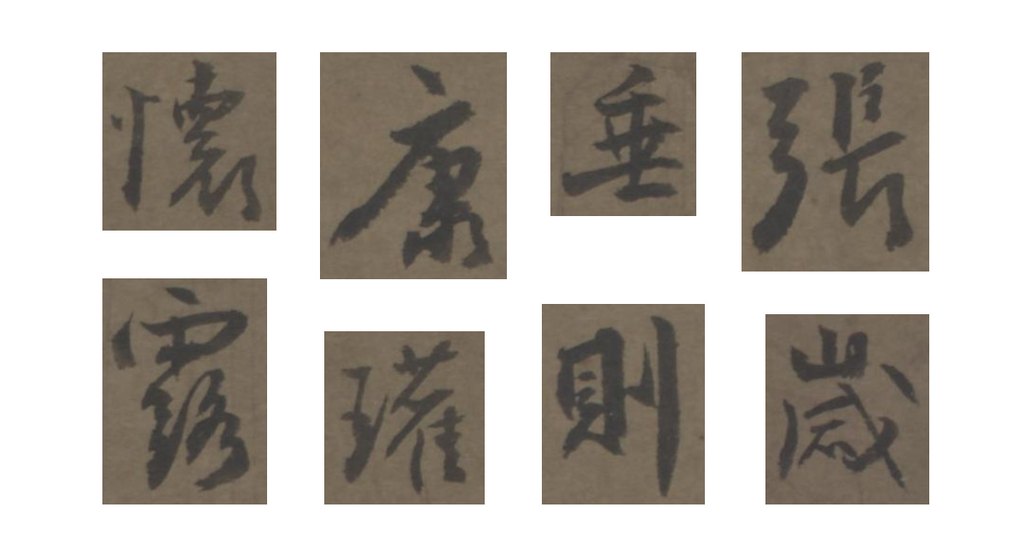 懷康垂張
露瓘則歲